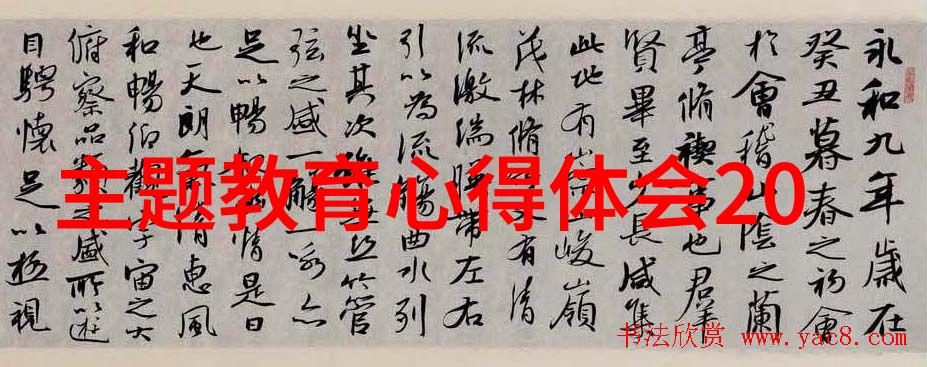 永和九年歲在
癸丑暮春之初會
於會稽山陰之蘭
亭脩禊事也羣
賢畢至少長咸集
此地有峻嶺
茂林脩有清
流激湍暎帶左右
引以為流觴曲水列
坐其次竹管
弦之盛一觴一詠亦
足以暢情是日
也天朗清惠風
和暢仰觀宇宙之大
俯察品類之盛所以遊
目騁懷足以極視
主题教育心得体会20
书法欣赏 www.yac8.com